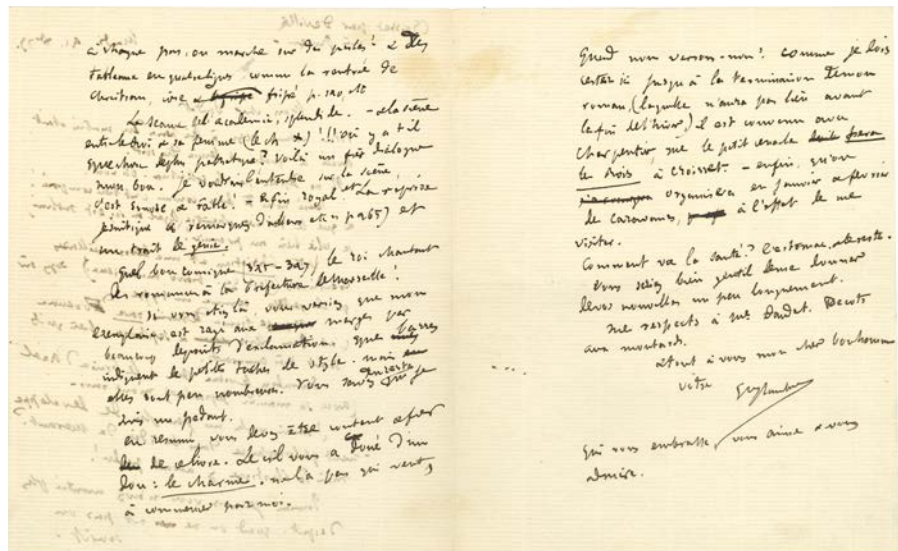 à chaque pas, on marche sur des perles! & des
tableaux en quelques lignes comme la rentrée de
Christian, ivre & fripé p. 120, etc
La séance de l'académie, splendide. – et la scène
entre le Roi & sa femme (le ch X) !!! où y a t'il
quelque chose de plus pathétique? Voilà un fier dialogue
mon bon. Je voudrais l'entendre sur la scène,
c'est simple & fort! – enfin royal, et La réponse
jésuitique (& remarques d'ailleurs etc p 265) et
un trait de génie.
Quel bon comique 325-327, le roi chantant
des romances à la Préfecture de Marseille!
Si vous étiez là, vous verriez que mon
exemplaire est rayé aux marges par
beaucoup de points d'exclamation. Quelques barres
indiquent de petites taches de style. mais
elles sont peu nombreuses. Vous savez que je
suis un pédant.
en résumé, vous devez être content & fier
de ce livre. Le ciel vous a doué d'un
don: le charme. n'en a pas qui veut,
à commencer par moi.
Quand nous verrons-nous? comme je dois
rester ici jusqu'à la terminaison de mon
roman, (laquelle n'aura pas lieu avant
la fin de l'hiver) il est convenu avec
Charpentier, que le petit cenacle fera
les Rois à Croisset. – enfin, qu'on
organisera en janvier & février
de caravanes, à l'effet de me
visiter.
Comment va la santé? l'estomac, & le reste.
Vous seriez bien gentil de me donner
de vos nouvelles un peu longuement.
mes respects à Me Daudet. Bécots
aux moutards.
& tout à vous mon cher bonhomme
votre Gve Flaubert
qui vous embrasse, vous aime & vous
admire.